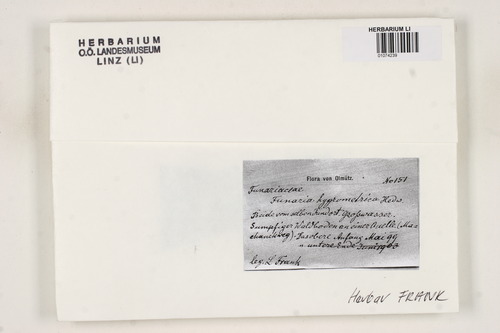 HERBARIUM
O.Ö. LANDESMUSEUM
LINZ (LI)
HERBARIUM LI
01074239
Flora von Olmütz. No 151
Funariaceae
Funaria hygrometrica Hedw.
Großwasser.
Sumpfiger Waldboden an einer Quelle (Ma-
Anfang Mai 99
u. untere Ende
leg. L. Frank
Herbar FRANK